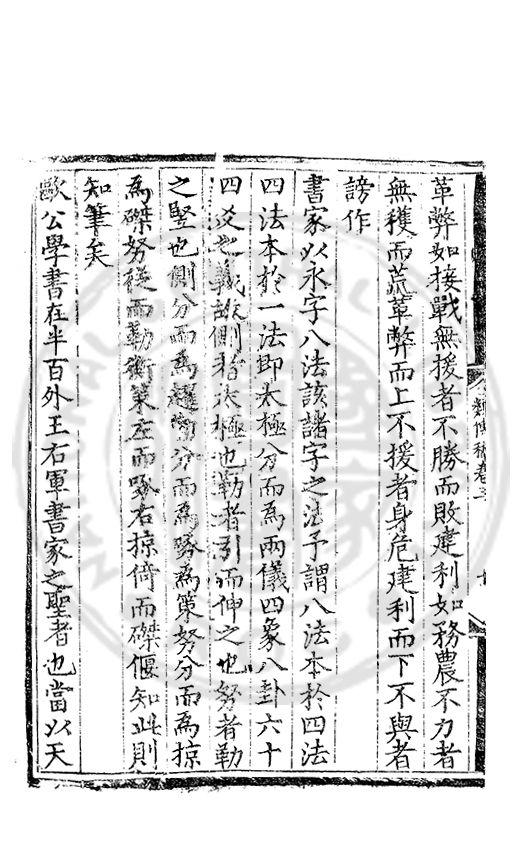 革弊如接戰無援者不勝而敗建利如務農不力者
無穫而荒革弊而上不援者身危建利而下不與者
謗作
書家以永字八法該諸字之法予謂八法本於四法
四法本於一法即太極分而為兩儀四象八卦六十
四爻之義故側者太極也勒者引而伸之也努者勒
之豎也側分而為趯分而為啄為策努分而為掠
為磔努從而勒衡策左而啄右掠倚而磔偃知此則
知筆矣
歐公學書在半百外王右軍書家之聖者也當以天
卷三